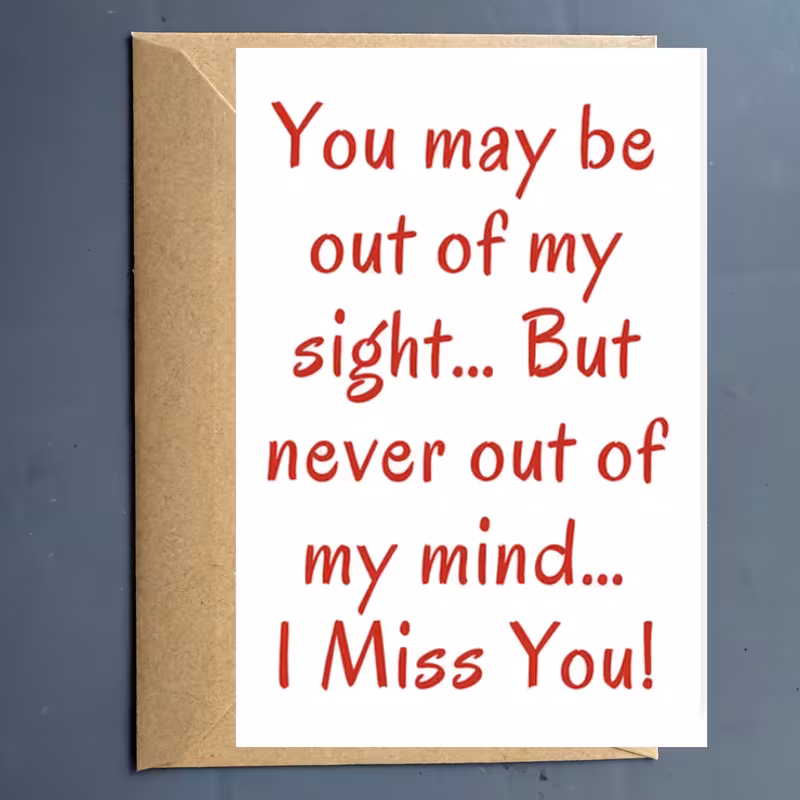 You may be
out of my
sight... But
never out of
my mind...
I Miss You!